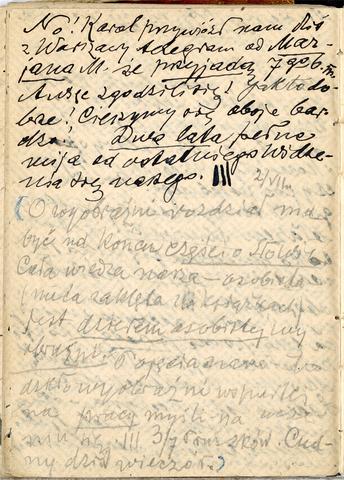 No! Karol przywiózł nam dziś
z Warszawy telegram od Mar-
jana M. że przyjadą 7 go b.m.
A więc zgodzili się! Jak to do-
brze! Cieszymy się oboje bar-
dzo! Dwa lata pełne
mija od ostatniego widze-
nia się naszego. III
2/VII.
(O wyobraźni rozdział ma
być na końcu części o słowie
Cała wiedza nasza – osobista
(nie ta zaklęta w książkach)
jest dziełem osobistej wy-
obraźni.
wyobraźni wspartej
na pracy myśli na
III. 3/7 Cud-
ny dziś wieczór.)